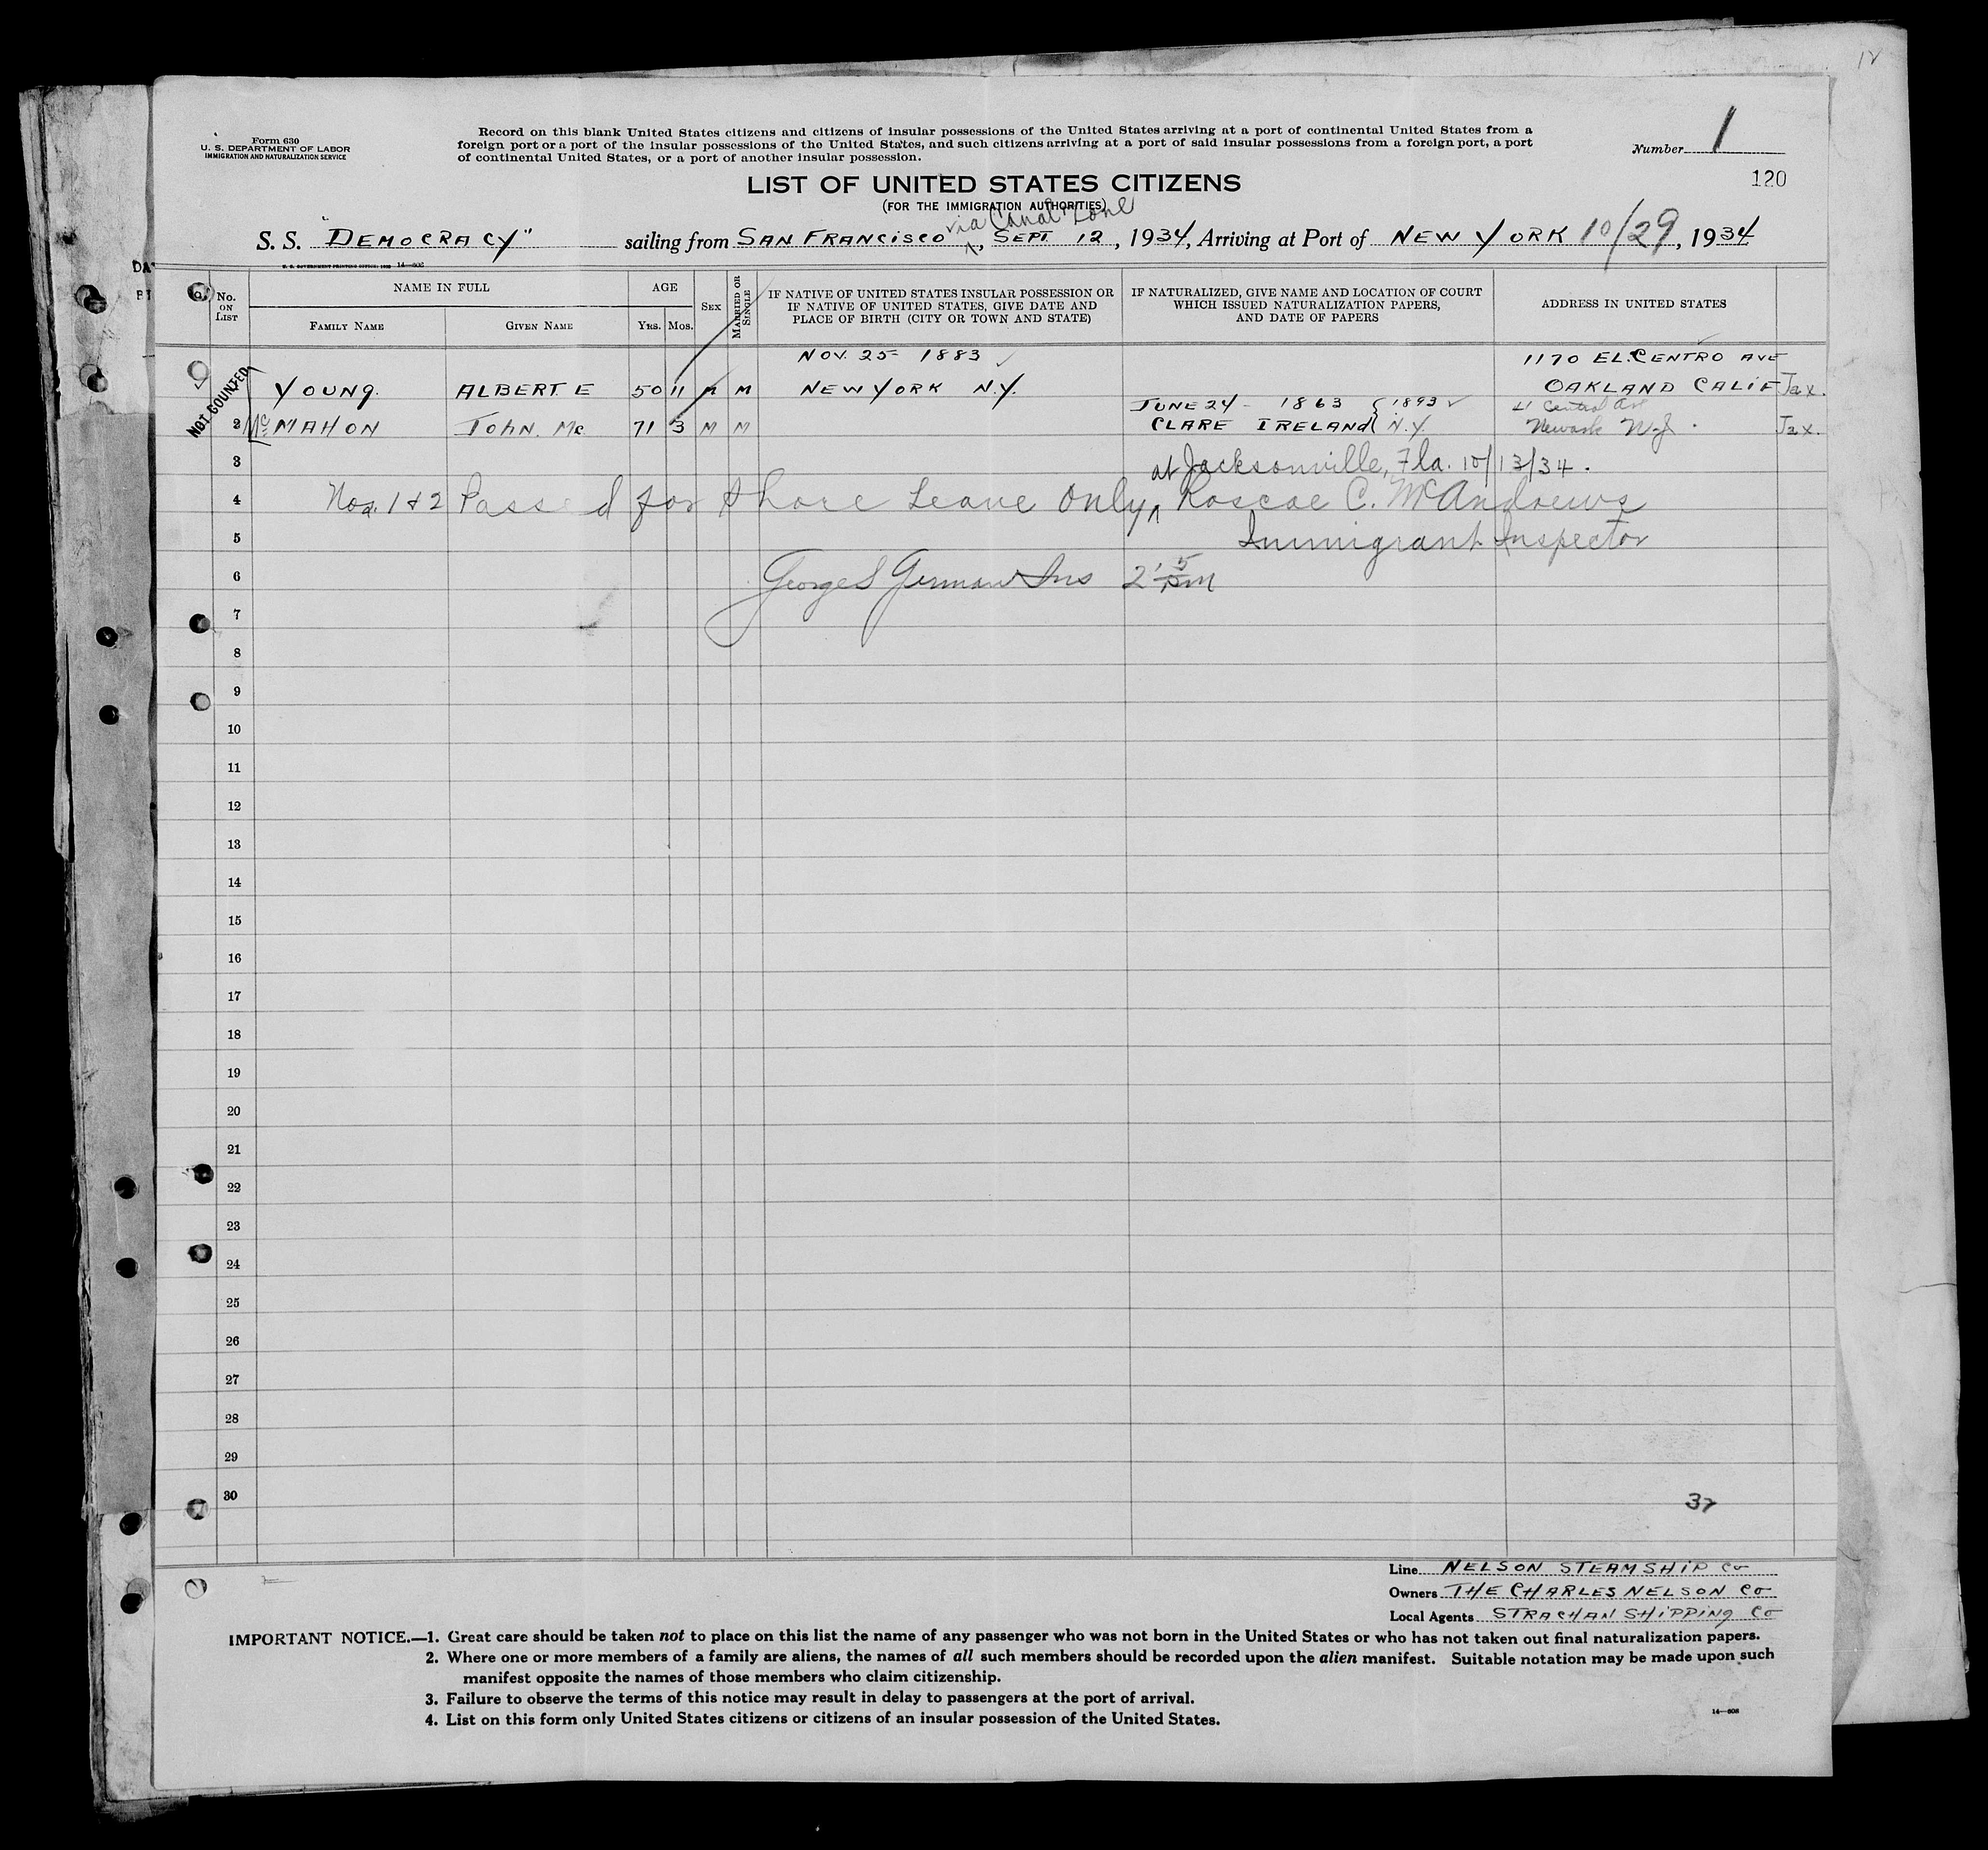 Form 630
U. S. DEPARTMENT OF LABOR
IMMIGRATION AND NATURALIZATION SERVICE
Record on this blank United States citizens and citizens of insular possessions of the United States arriving at a port of continental United States from a
foreign port or a port of the insular possessions of the United States, and such citizens arriving at a port of said insular possessions from a foreign port, a port
of continental United States, or a port of another insular possession.
Number 1
120
LIST OF UNITED STATES CITIZENS
(FOR THE IMMIGRATION AUTHORITIES)
via Canal Zone
S. S. "DEMOCRACY" sailing from SAN FRANCISCO, SEPT 12, 1934, Arriving at Port of NEW YORK 10/29, 1934
No. ON LIST
NAME IN FULL
FAMILY NAME
GIVEN NAME
AGE
YRS. MOS.
SEX
MARRIED OR SINGLE
IF NATIVE OF UNITED STATES INSULAR POSSESSION OR
IF NATIVE OF UNITED STATES, GIVE DATE AND
PLACE OF BIRTH (CITY OR TOWN AND STATE)
IF NATURALIZED, GIVE NAME AND LOCATION OF COURT
WHICH ISSUED NATURALIZATION PAPERS,
AND DATE OF PAPERS
ADDRESS IN UNITED STATES
NOT COUNTED
NOV. 25 - 1883
1170 EL. CENTRO AVE
YOUNG. ALBERT. E 50 11 M M NEW YORK N.Y. OAKLAND CALIF Jax.
JUNE 24 - 1863 { 1893
41 Central Ave
2 Mc MAHON JOHN. Mc 71 3 M M CLARE IRELAND { N.Y. Newark N.J. Jax.
3 at Jacksonville, Fla. 10/13/34.
4 Nos. 1 & 2 Passed for Shore Leave Only, Roscoe C. McAndrews
5 Immigrant Inspector
6 George S German Ins 2 5 pm
7
8
9
10
11
12
13
14
15
16
17
18
19
20
21
22
23
24
25
26
27
28
29
30
37
Line NELSON STEAMSHIP Co
Owners THE CHARLES NELSON Co
Local Agents STRACHAN SHIPPING Co
IMPORTANT NOTICE.—1. Great care should be taken not to place on this list the name of any passenger who was not born in the United States or who has not taken out final naturalization papers.
2. Where one or more members of a family are aliens, the names of all such members should be recorded upon the alien manifest. Suitable notation may be made upon such
manifest opposite the names of those members who claim citizenship.
3. Failure to observe the terms of this notice may result in delay to passengers at the port of arrival.
4. List on this form only United States citizens or citizens of an insular possession of the United States.
14—808